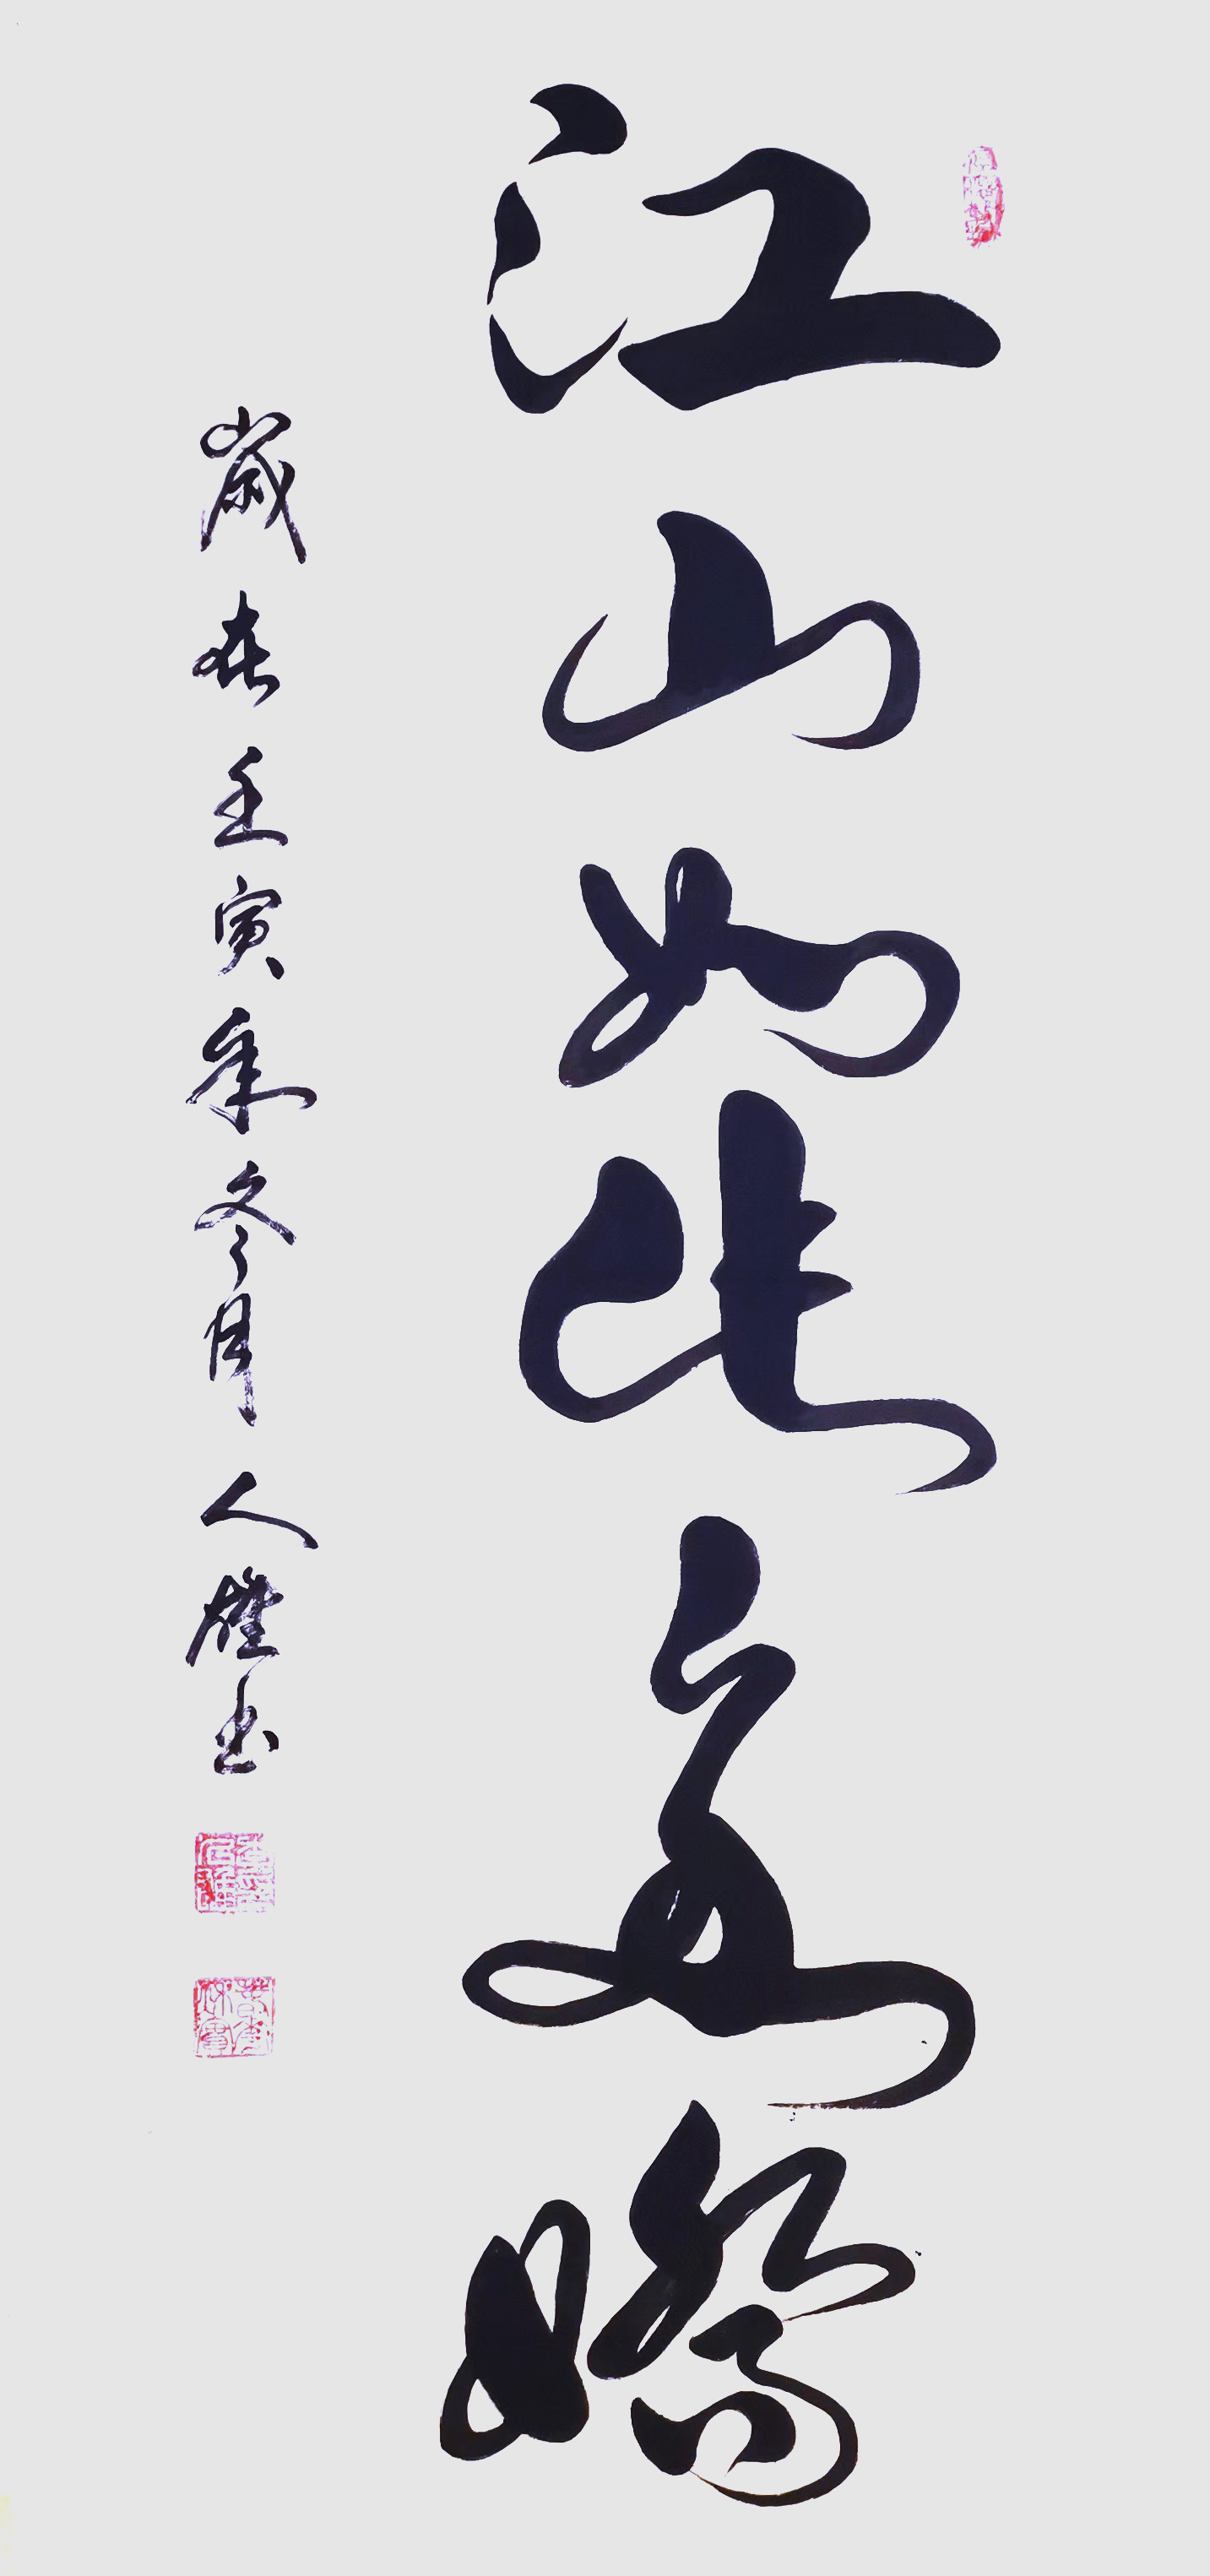 江山如此多嬌
歲在壬寅年冬月 人雄書